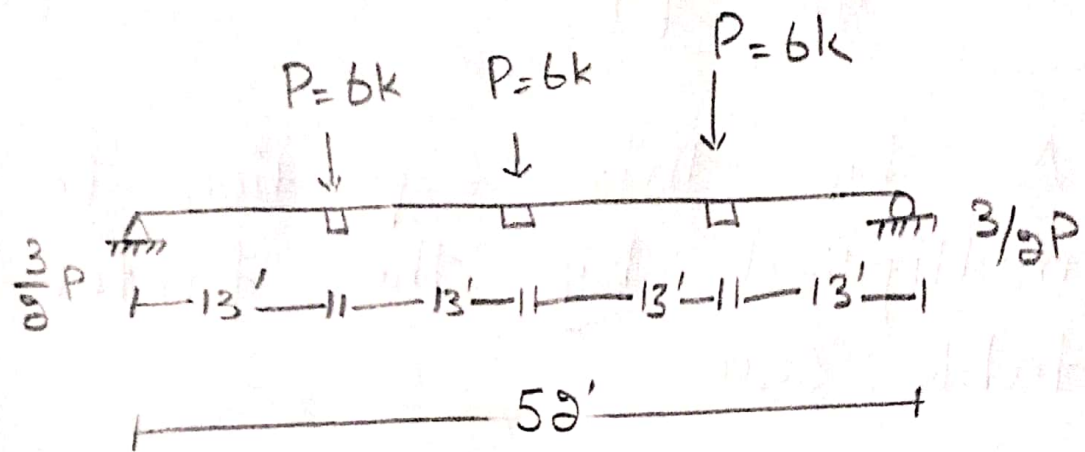 P = 6k P = 6k P = 6k
3/2 P 3/2 P
13' 13' 13' 13'
52'